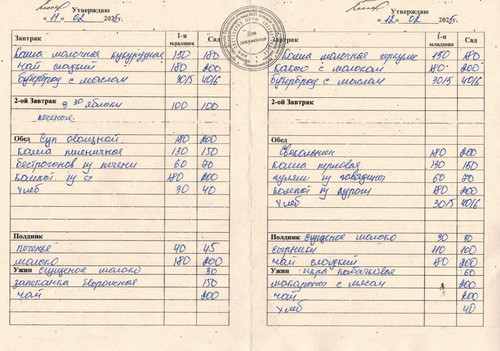 Утверждаю
« 11 » 02
1-я младшая Сад
Завтрак
Каша молочная кукурузная 130 180
чай сладкий 180 200
бутерброд с маслом 30/5 40/6
2-ой Завтрак
я 30 яблоки 100 100
печенье
Обед Суп овощной 180 200
каша пшеничная 130 150
бестрогонов из печени 60 70
компот из 180 200
хлеб 30 40
Полдник
печенье 40 45
молоко 180 200
Ужин сгущеное молоко 30
запеканка творожная 150
чай 200
Утверждаю
« 12 » 02
1-я младшая Сад
Завтрак
Каша молочная геркулес 130 180
какао с молоком 180 200
бутерброд с маслом 30/5 40/6
2-ой Завтрак
Обед
Свекольник 180 200
каша перловая 130 150
гуляш из говядины 60 70
компот из кураги 180 200
хлеб 30/5 40/6
Полдник сгущеное молоко 30 30
сырники 110 100
чай сладкий 180 200
Ужин икра кабачковая 60
макароны с мясом 200
чай 200
хлеб 40
Для документов